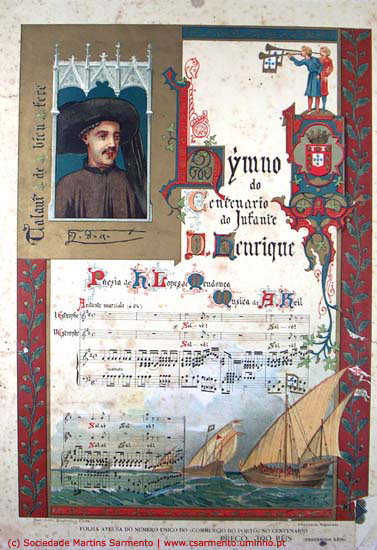 Talant de bien fere
Hymno
do
Centenario
do Infante
D. Henrique
Poezia de H. Lopes de Mendonça
Musica de A. Keil
Andante marziale
I Estrophe
Sal - vè!
Sal - vè!
II Estrophe
Sal - vè!
Sal - vè!
FOLHA AVULSA DO NUMERO UNICO DO «COMMERCIO DO PORTO» NO CENTENARIO
PREÇO 200 RÉIS
(c) Sociedade Martins Sarmento | www.csarmento.uminho.pt